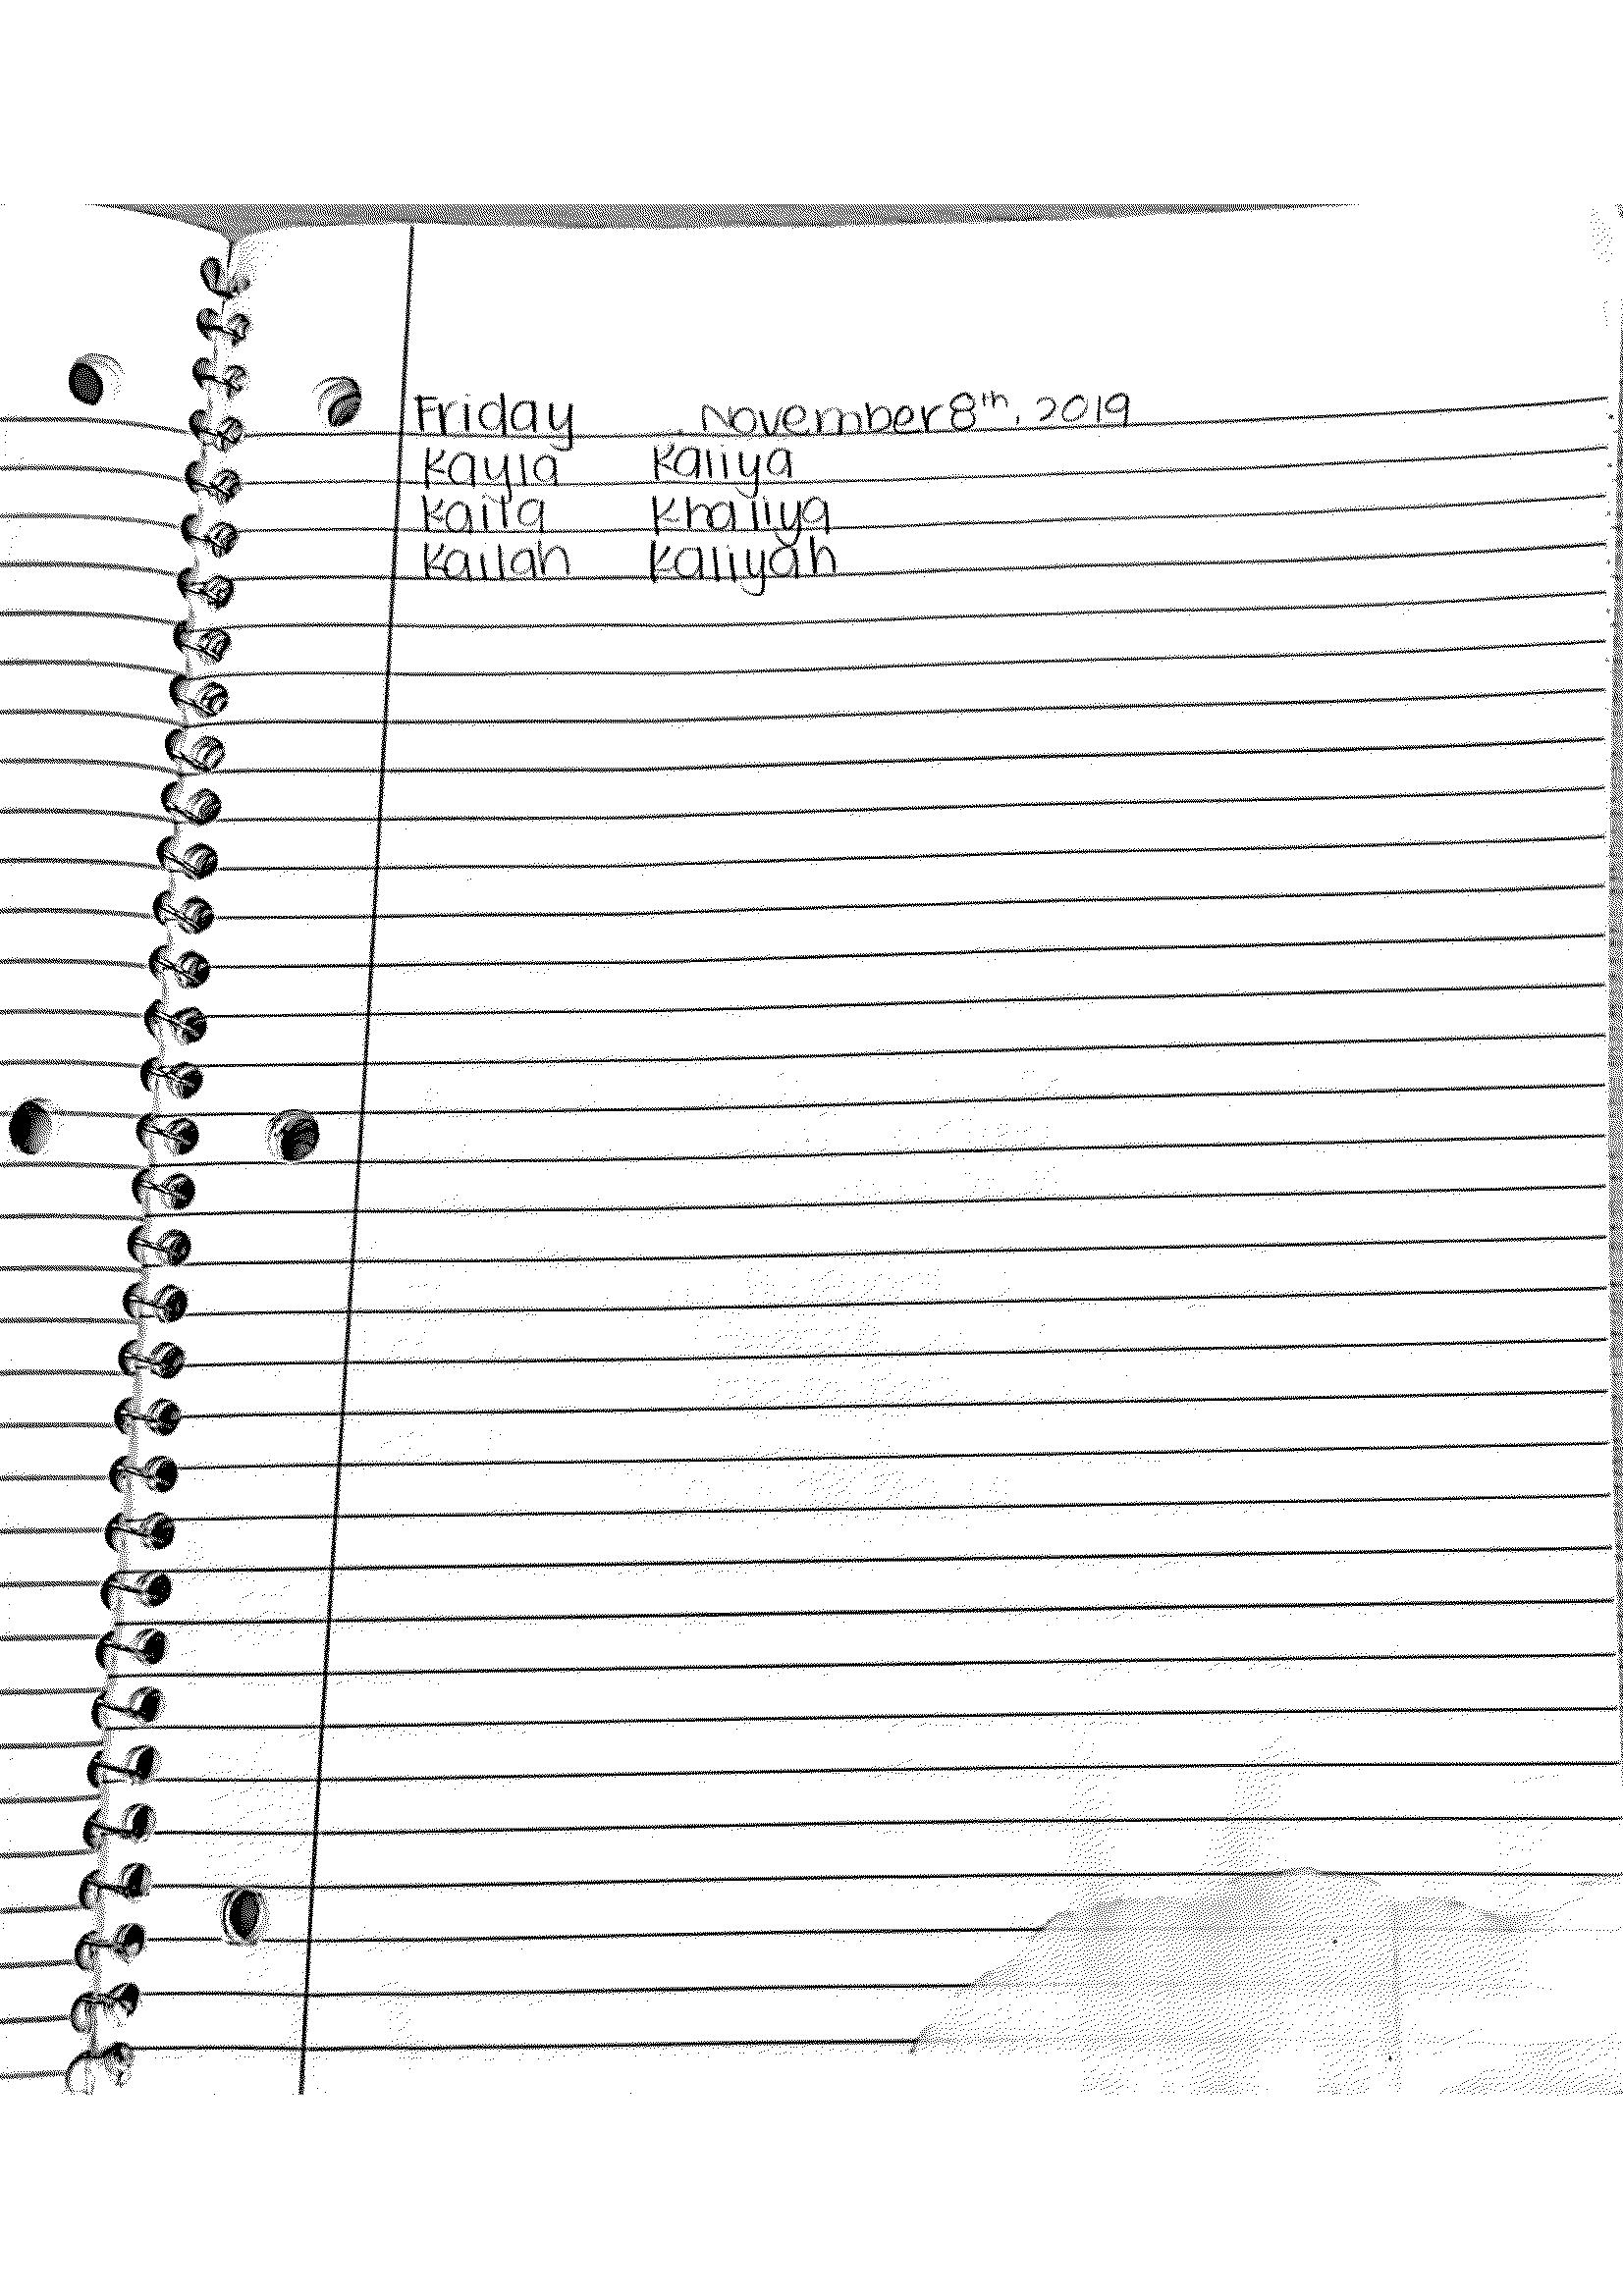 Friday November 8th, 2019
Kayla Kaliya
Kaila Khaliya
Kailah Kaliyah